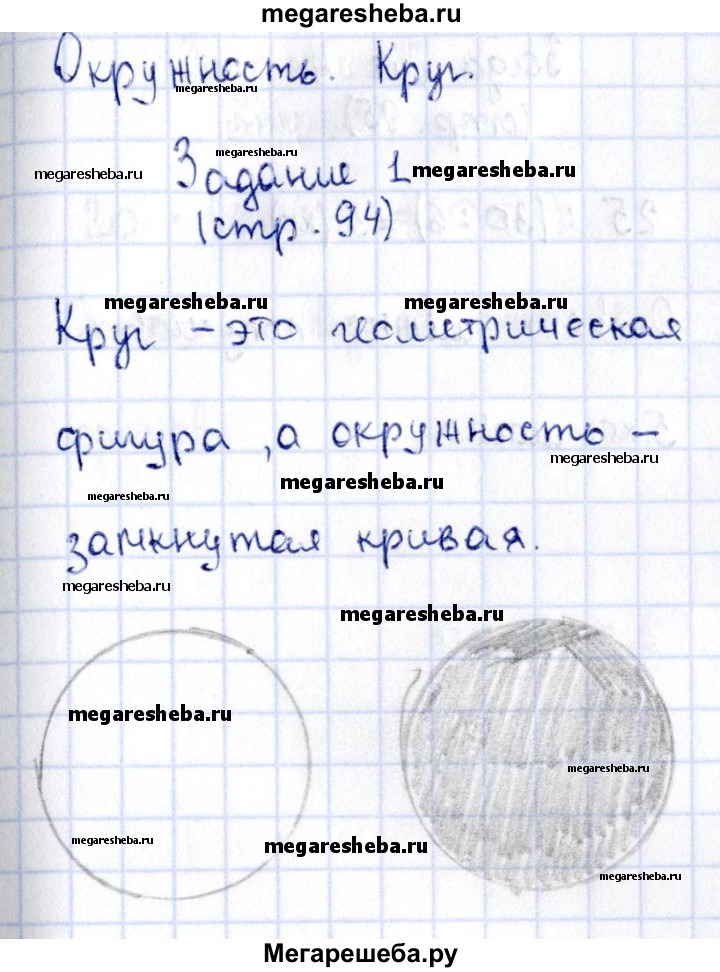 megaresheba.ru
Окружность. Круг.
megaresheba.ru
megaresheba.ru
megaresheba.ru Задание 1 megaresheba.ru
(стр. 94)
megaresheba.ru megaresheba.ru
Круг – это геометрическая
фигура, а окружность –
megaresheba.ru
megaresheba.ru
megaresheba.ru
замкнутая кривая.
megaresheba.ru
megaresheba.ru
megaresheba.ru
megaresheba.ru
megaresheba.ru megaresheba.ru
megaresheba.ru
Мегарешеба.ру